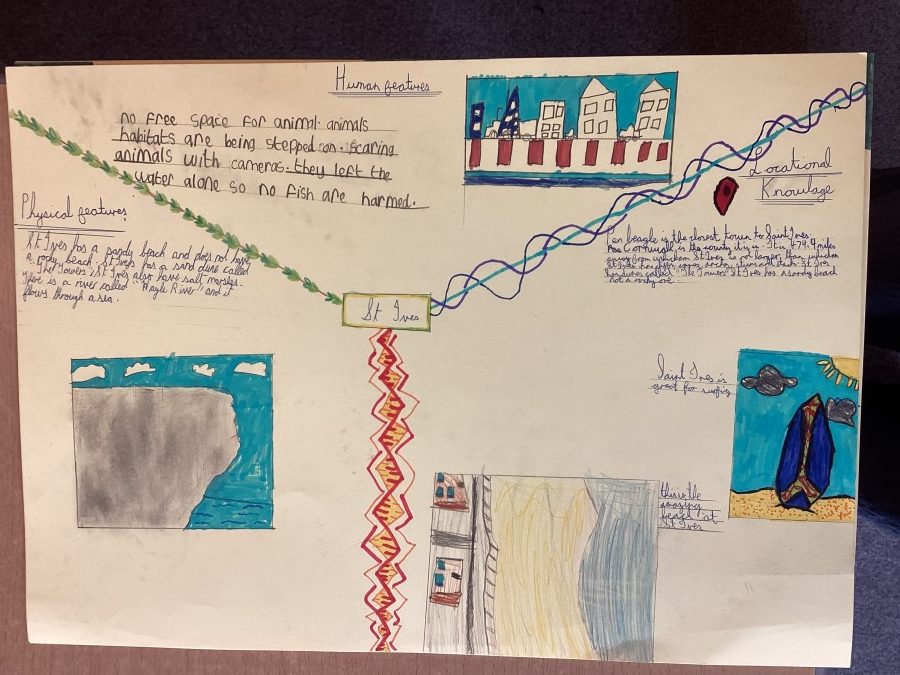 Human features
no free space for animal. animals
habitats are being stepped on. scaring
animals with cameras. they left the
water alone so no fish are harmed.
Locational
Knowlage
Physical features
St Ives has a sandy beach and does not have
a rocky beach. St Ives has a sand dune called
"The Towers". St Ives also have salt marshes.
There is a river called "Hayle River" and it
flows through a sea.
is the closest town to Saint Ives.
Cornwall is the county it is in. It is 479.9 miles
away from St Ives is not larger than
St Ives has
called "The Towers" St Ives has a sandy beach
not a rocky one.
St Ives
Saint Ives is
great for surfing
this is the
amazing
beach at
St Ives